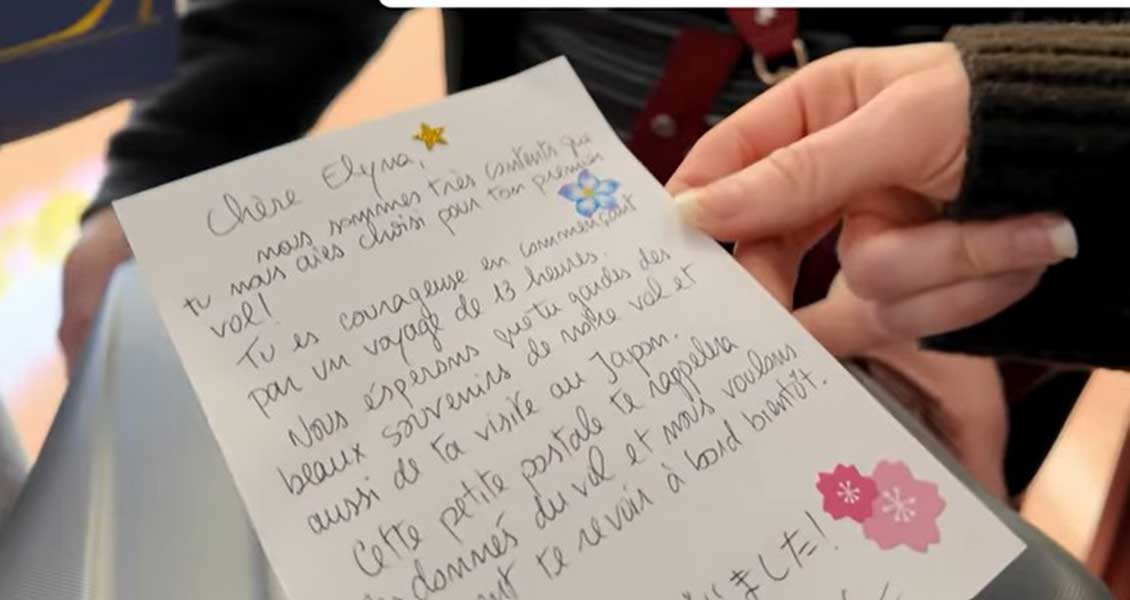 Chère Elyna,
nous sommes très contents que
tu nous aies choisi pour ton premier
vol!
Tu es courageuse en commençant
par un voyage de 13 heures.
Nous espérons que tu gardes des
beaux souvenirs de notre vol et
aussi de ta visite au Japon.
Cette petite postale te rappelera
donnés du vol et nous voulons
te revoir à bord bientôt.
ました!